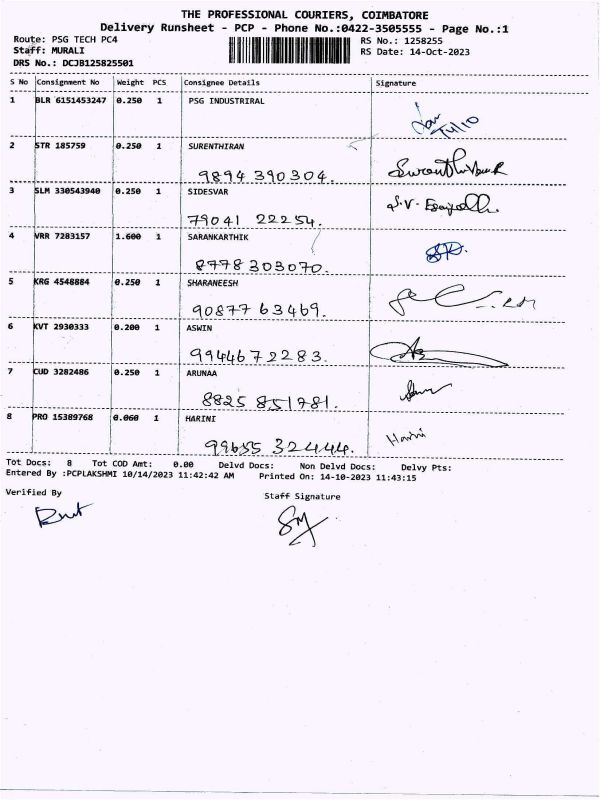 THE PROFESSIONAL COURIERS, COIMBATORE
Delivery Runsheet - PCP - Phone No.:0422-3505555 - Page No.:1
Route: PSG TECH PC4 RS No.: 1258255
Staff: MURALI RS Date: 14-Oct-2023
DRS No.: DCJB125825501
S No Consignment No Weight PCS Consignee Details Signature
1 BLR 6151453247 0.250 1 PSG INDUSTRIRAL
2 STR 185759 0.250 1 SURENTHIRAN
9894 390304.
3 SLM 330543940 0.250 1 SIDESVAR
79041 22254.
4 VRR 7283157 1.600 1 SARANKARTHIK
8778 303070.
5 KRG 4548884 0.250 1 SHARANEESH
90877 63469.
6 KVT 2930333 0.200 1 ASWIN
9944672283.
7 CUD 3282486 0.250 1 ARUNAA
8825 851781.
8 PRO 15389768 0.060 1 HARINI
99655 32444. Harini
Tot Docs: 8 Tot COD Amt: 0.00 Delvd Docs: Non Delvd Docs: Delvy Pts:
Entered By :PCPLAKSHMI 10/14/2023 11:42:42 AM Printed On: 14-10-2023 11:43:15
Verified By Staff Signature